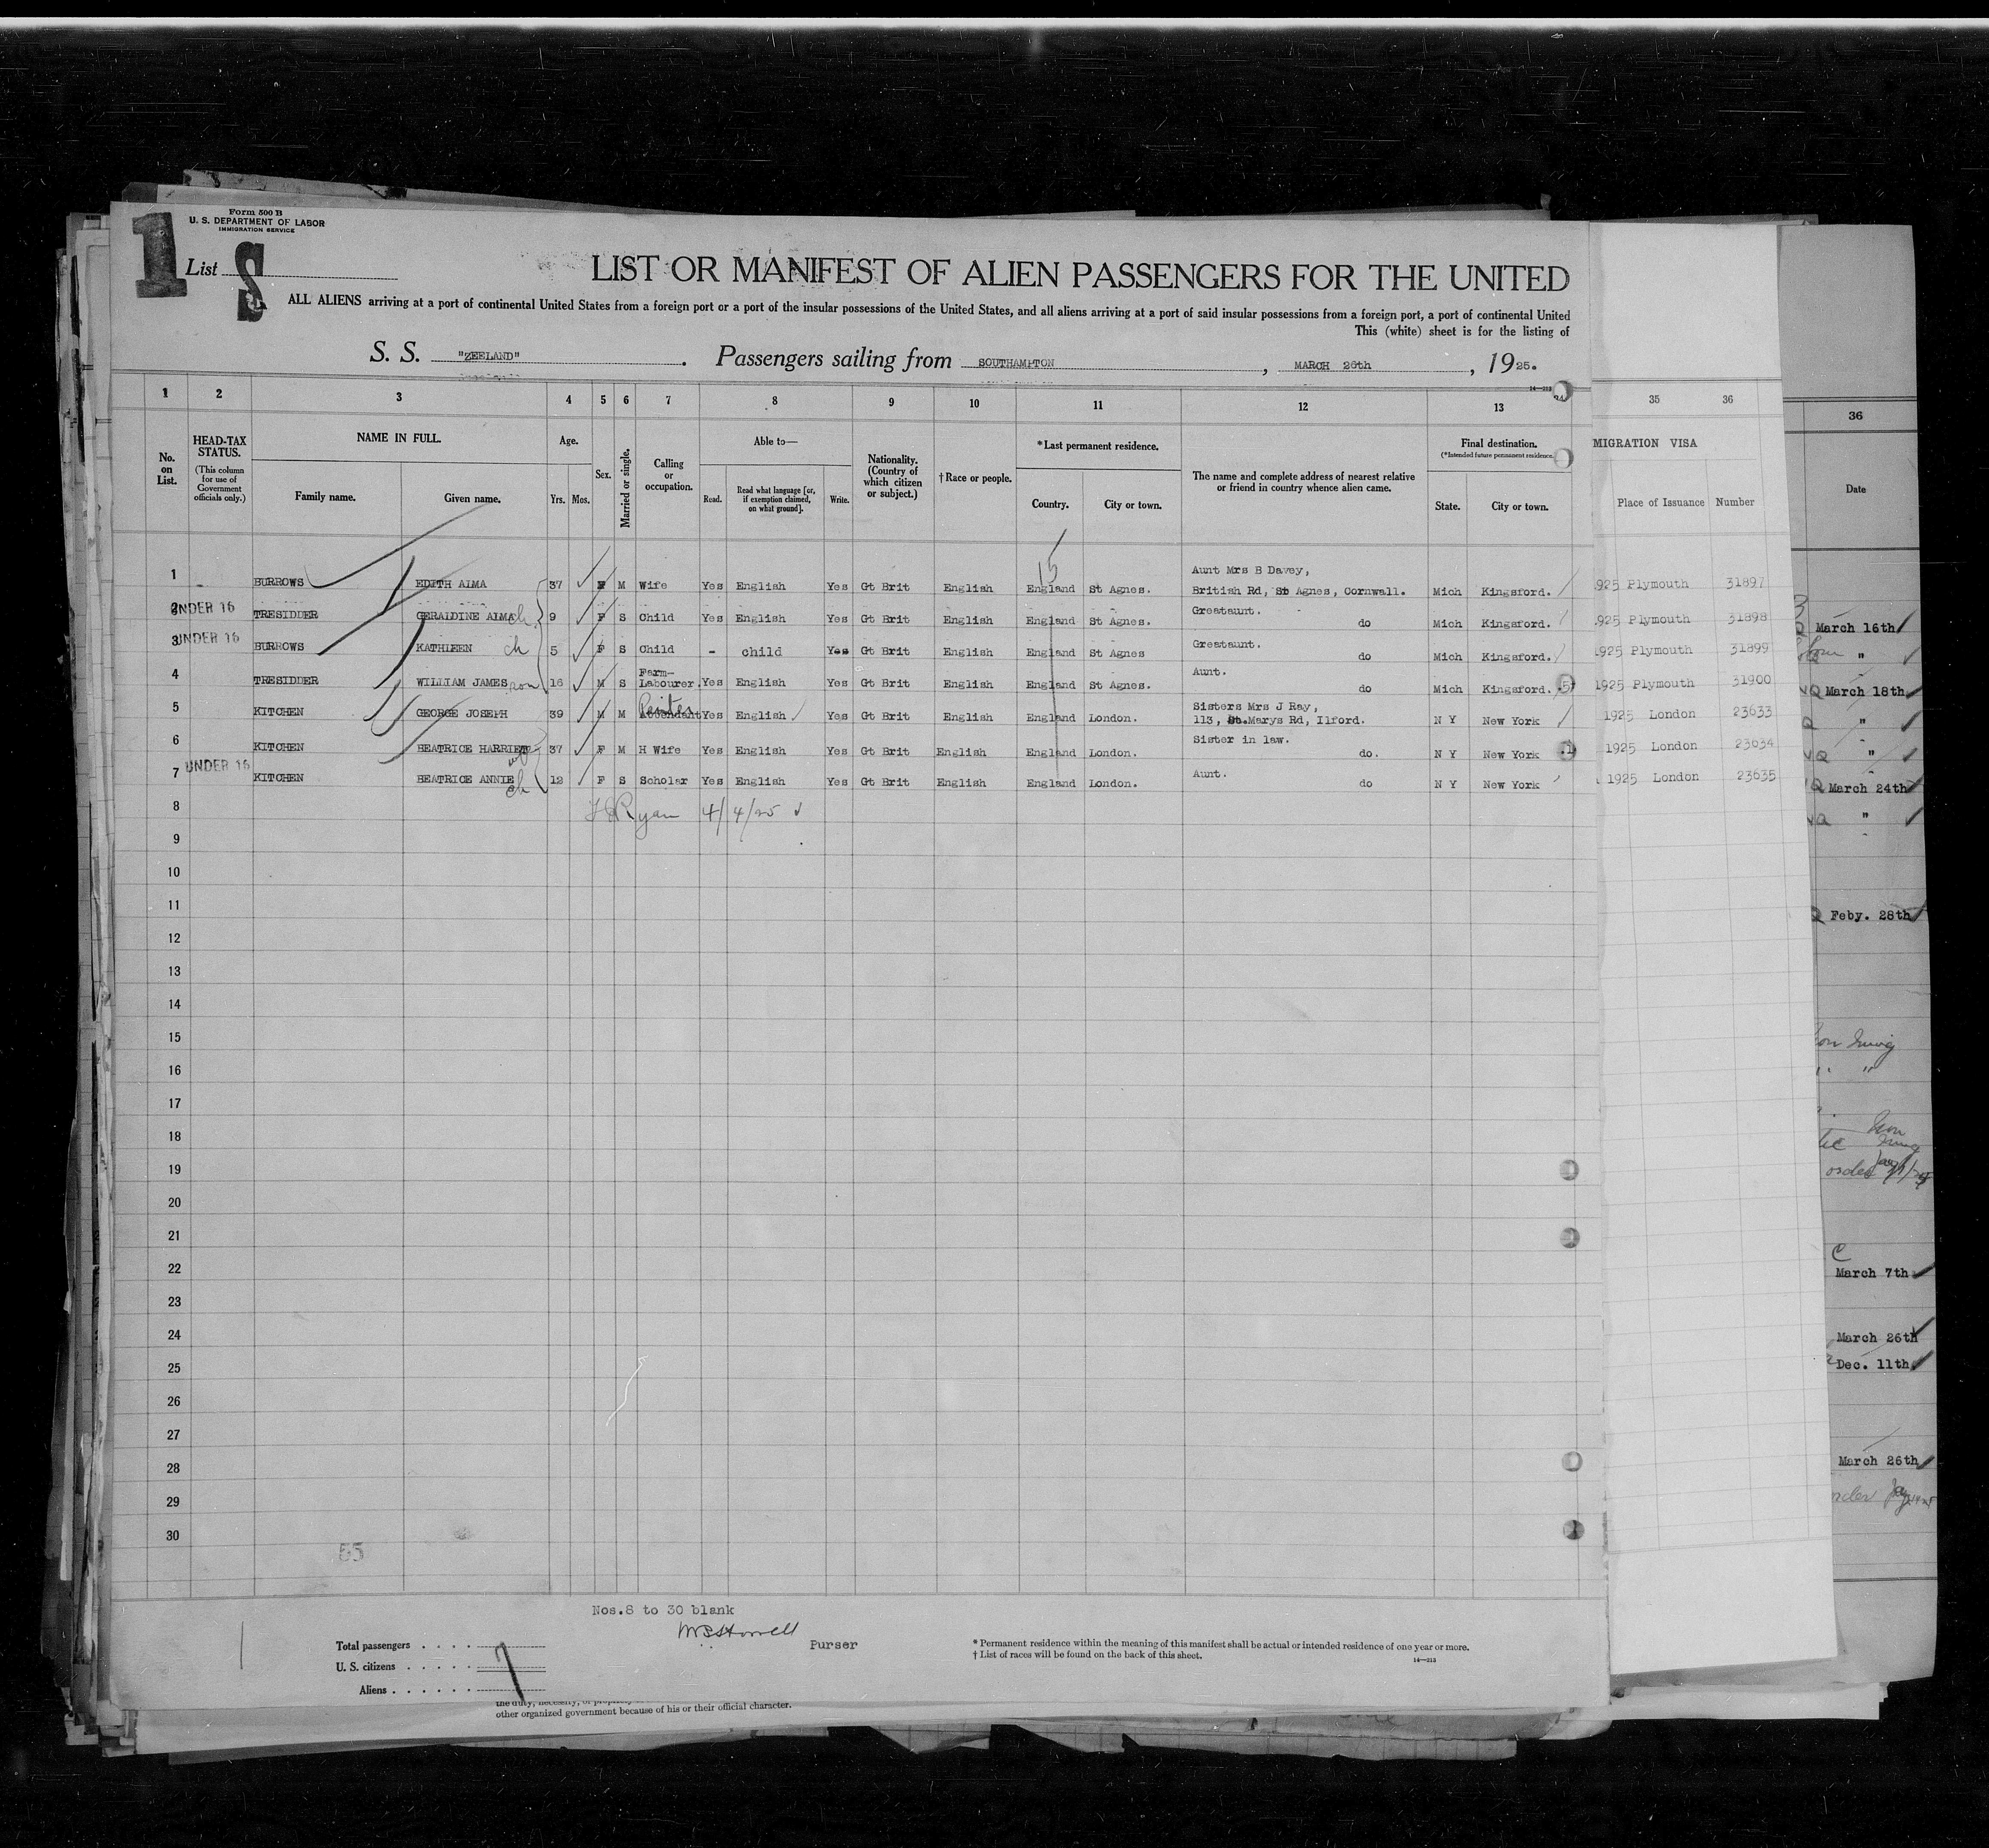 Form 500 B
U. S. DEPARTMENT OF LABOR
IMMIGRATION SERVICE
1
List S
LIST OR MANIFEST OF ALIEN PASSENGERS FOR THE UNITED
ALL ALIENS arriving at a port of continental United States from a foreign port or a port of the insular possessions of the United States, and all aliens arriving at a port of said insular possessions from a foreign port, a port of continental United
This (white) sheet is for the listing of
S. S. "ZEELAND". Passengers sailing from SOUTHAMPTON, MARCH 26th, 1925.
14—213
1 2 3 4 5 6 7 8 9 10 11 12 13 35 36 36
No. on List.
HEAD-TAX STATUS.
(This column for use of Government officials only.)
NAME IN FULL.
Family name. Given name.
Age.
Yrs. Mos.
Sex.
Married or single.
Calling or occupation.
Able to—
Read. Read what language [or, if exemption claimed, on what ground]. Write.
Nationality. (Country of which citizen or subject.)
† Race or people.
*Last permanent residence.
Country. City or town.
The name and complete address of nearest relative or friend in country whence alien came.
Final destination.
(*Intended future permanent residence.)
State. City or town.
MIGRATION VISA
Place of Issuance Number
Date
15
1 BURROWS EDITH ALMA 37 F M Wife Yes English Yes Gt Brit English England St Agnes. Aunt Mrs B Davey, British Rd, St Agnes, Cornwall. Mich Kingsford. 1925 Plymouth 31897
2 UNDER 16 TRESIDDER GERALDINE ALMA ch 9 F S Child Yes English Yes Gt Brit English England St Agnes. Greataunt. do Mich Kingsford. 1925 Plymouth 31898
3 UNDER 16 BURROWS KATHLEEN ch 5 F S Child - child Yes Gt Brit English England St Agnes Greataunt. do Mich Kingsford. 1925 Plymouth 31899
4 TRESIDDER WILLIAM JAMES son 16 M S Farm-Labourer. Yes English Yes Gt Brit English England St Agnes. Aunt. do Mich Kingsford. 5 1925 Plymouth 31900
5 KITCHEN GEORGE JOSEPH 39 M M Attendant Yes English Yes Gt Brit English England London. Sisters Mrs J Ray, 113, St.Marys Rd, Ilford. N Y New York 1925 London 23633
6 KITCHEN BEATRICE HARRIET wf 37 F M H Wife Yes English Yes Gt Brit English England London. Sister in law. do. N Y New York 1 1925 London 23634
7 UNDER 16 KITCHEN BEATRICE ANNIE ch 12 F S Scholar Yes English Yes Gt Brit English England London. Aunt. do N Y New York 1925 London 23635
8 Ryan 4/4/25
9
10
11
12
13
14
15
16
17
18
19
20
21
22
23
24
25
26
27
28
29
30
March 16th
"
March 18th
"
"
March 24th
"
Feby. 28th
March 7th
March 26th
Dec. 11th
March 26th
Nos.8 to 30 blank
Purser
Total passengers . . . .
U. S. citizens . . . . . .
Aliens . . . . . . 7
* Permanent residence within the meaning of this manifest shall be actual or intended residence of one year or more.
† List of races will be found on the back of this sheet.
14—213
other organized government because of his or their official character.